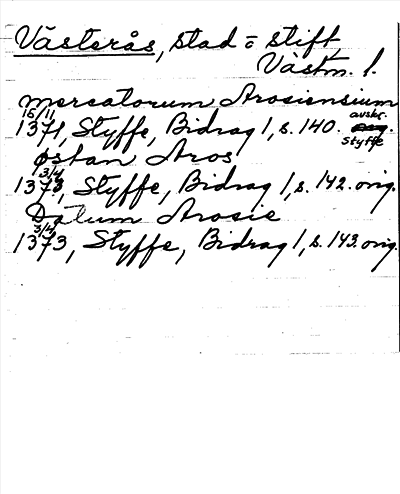 Västerås, stad o stift,
Västm. l.
mercatorum Arosiensium
15/11 1371, Styffe, Bidrag 1, s. 140. avskr. Styffe
Østan Aros
3/4 1373, Styffe, Bidrag 1, s. 142. orig.
Datum Arosie
3/4 1373, Styffe, Bidrag 1, s. 143. orig.